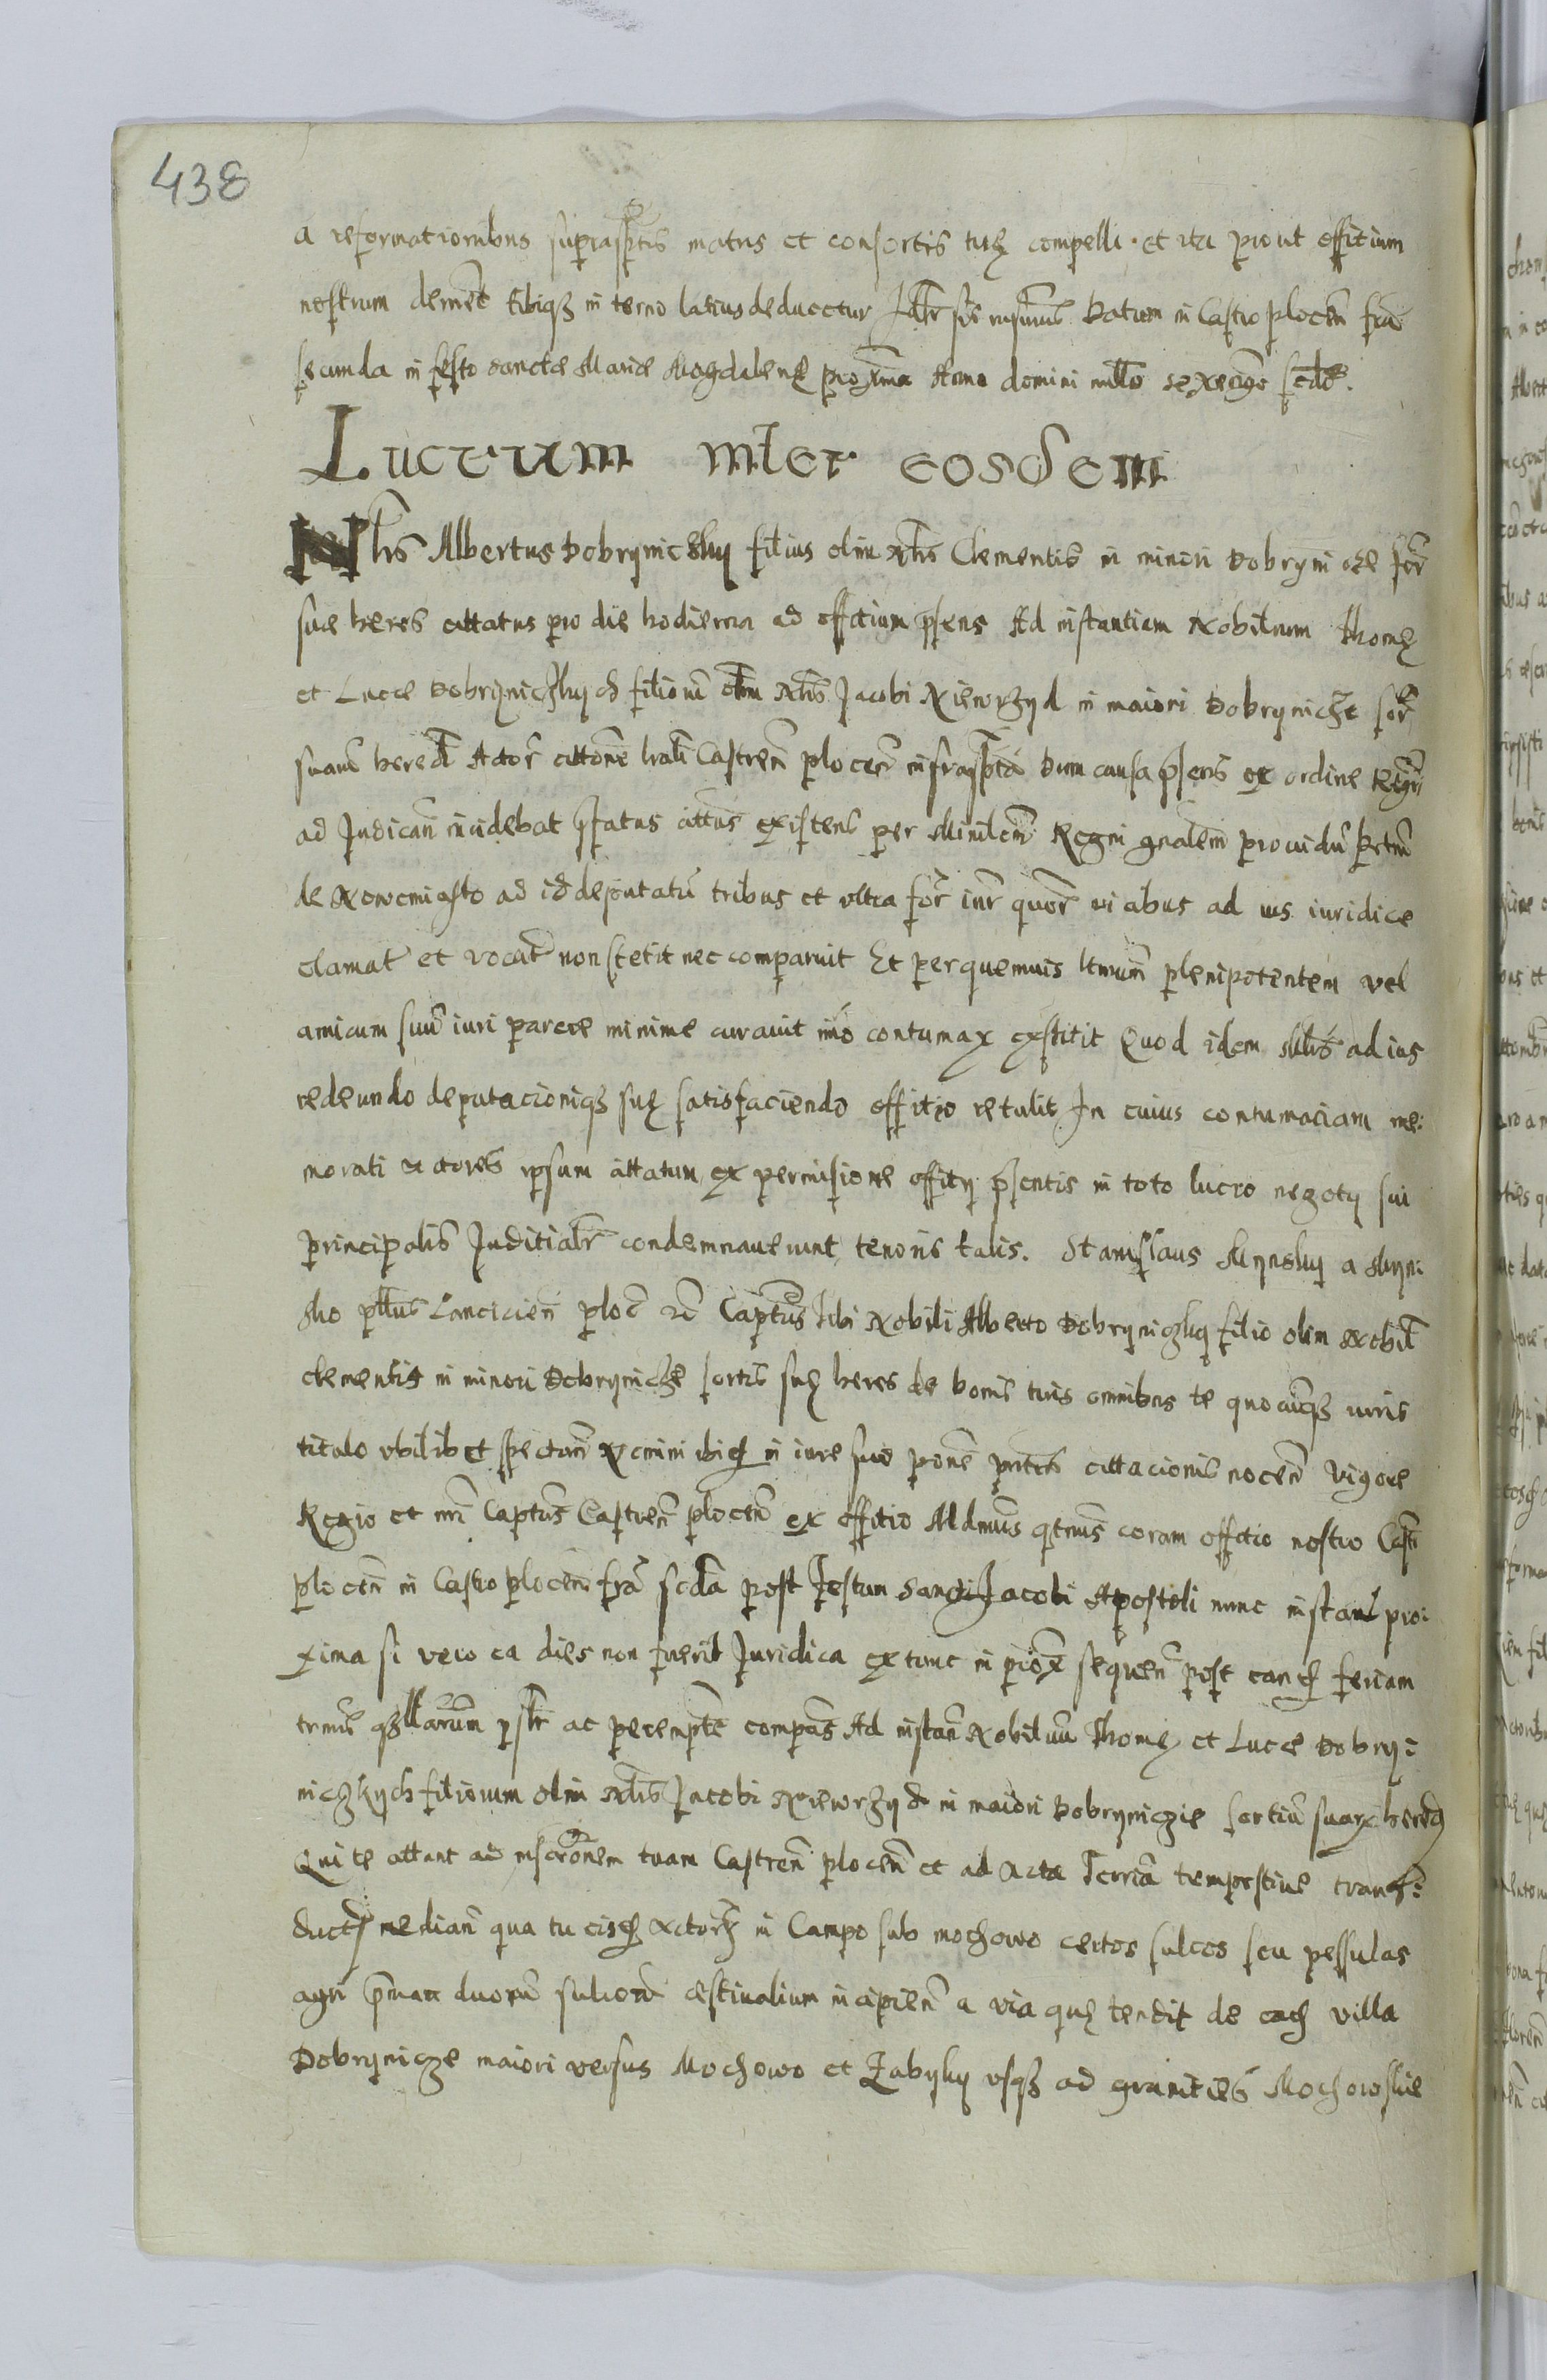 438
a reformationibus suprascptis matris et consortis tuę compelli. et ita prout offitium
nostrum deniet tibiq in termo latius deducetur Datum in Castro plocen fria
secunda in festo sanctæ Mariæ Magdalenę proxima Anno domini millo sexcengo scdo.
Lucrum inter eosdem
Nblis Albertus Dobrÿnicskÿ filius olim Nblis Clementis in minori Dobrÿnicze sor
suæ heres cittatus pro die hodierna ad offitium psens Ad instantiam Nobilium Thomę
et Lucæ Dobrÿniczkÿch filiorum olim Nblis Jacobi Niewrzÿd in maiori Dobrÿnicze sor
suarũ hered Actor cittonẽ Castren plocen infrascpta Dum causa pseris ex ordine Regri
ad Judicañ incidebat pfatus cittus existens per Minilem Regni gnalem providũ Petrũ
de Nowemiasto ad id deputatũ tribus et ultra for inr quor vicibus ad ius iuridice
clamat et vocat non stetit nec comparuit Et per quemuis ltmum plenipotentem vel
amicum suũ iuri parere minime curauit imo contumax exstitit Quod idem Mlis ad ius
redeundo deputacioniq suę satisfaciendo offitio retulit In cuius contumaciam me:
morati actores ipsum cittatum ex permissione offitÿ psentis in toto lucro negotÿ sui
principalis Juditialr condemnauerunt tenoris talis. Stanislaus Mÿnskÿ a Mÿni
sko pltus Lancicien ploc zc Captus Tibi Nobili Alberto Dobrÿniczkÿ filio olim Nobil
clementis in minori Dobrÿnicze sortis suę heres de bonis tuis omnibus te quocũq iuris
titulo ubilibet spectan Nemini in iure suo ponẽ pntis cittacionis nocen Vigore
Regio et nri Captus Castren plocen ex offitio Mdmus qtnus coram offitio nostro Castr
plocen in Castro plocen fria scda post festum Sancti Jacobi Apostoli nunc instans pro:
xima si vero ea dies non fuerit Juridica extunc in prox sequen post eand feriam
trmis qzllarum pslr ac peremptẽ compeas Ad instan Nobilium Thomę et Lucæ Dobrÿ:
niczkÿch filiorum olim Nblis Jacobi Niewrzÿd in maiori Dobrÿniczæ sortiũ suarz hered
Qui te cittant ad inscronem tuam Castren plocen et ad Acta Terria tempestiue trans:
duct median qua tu eisd Actorz in Campo sub mochowo certos sulcos seu pessulas
agri duorũ sulcorũ æstiualium incipien a via quę tendit de ead villa
Dobrÿnicze maiori versus Mochowo et Zabÿkÿ usq ad granities Mochowskie